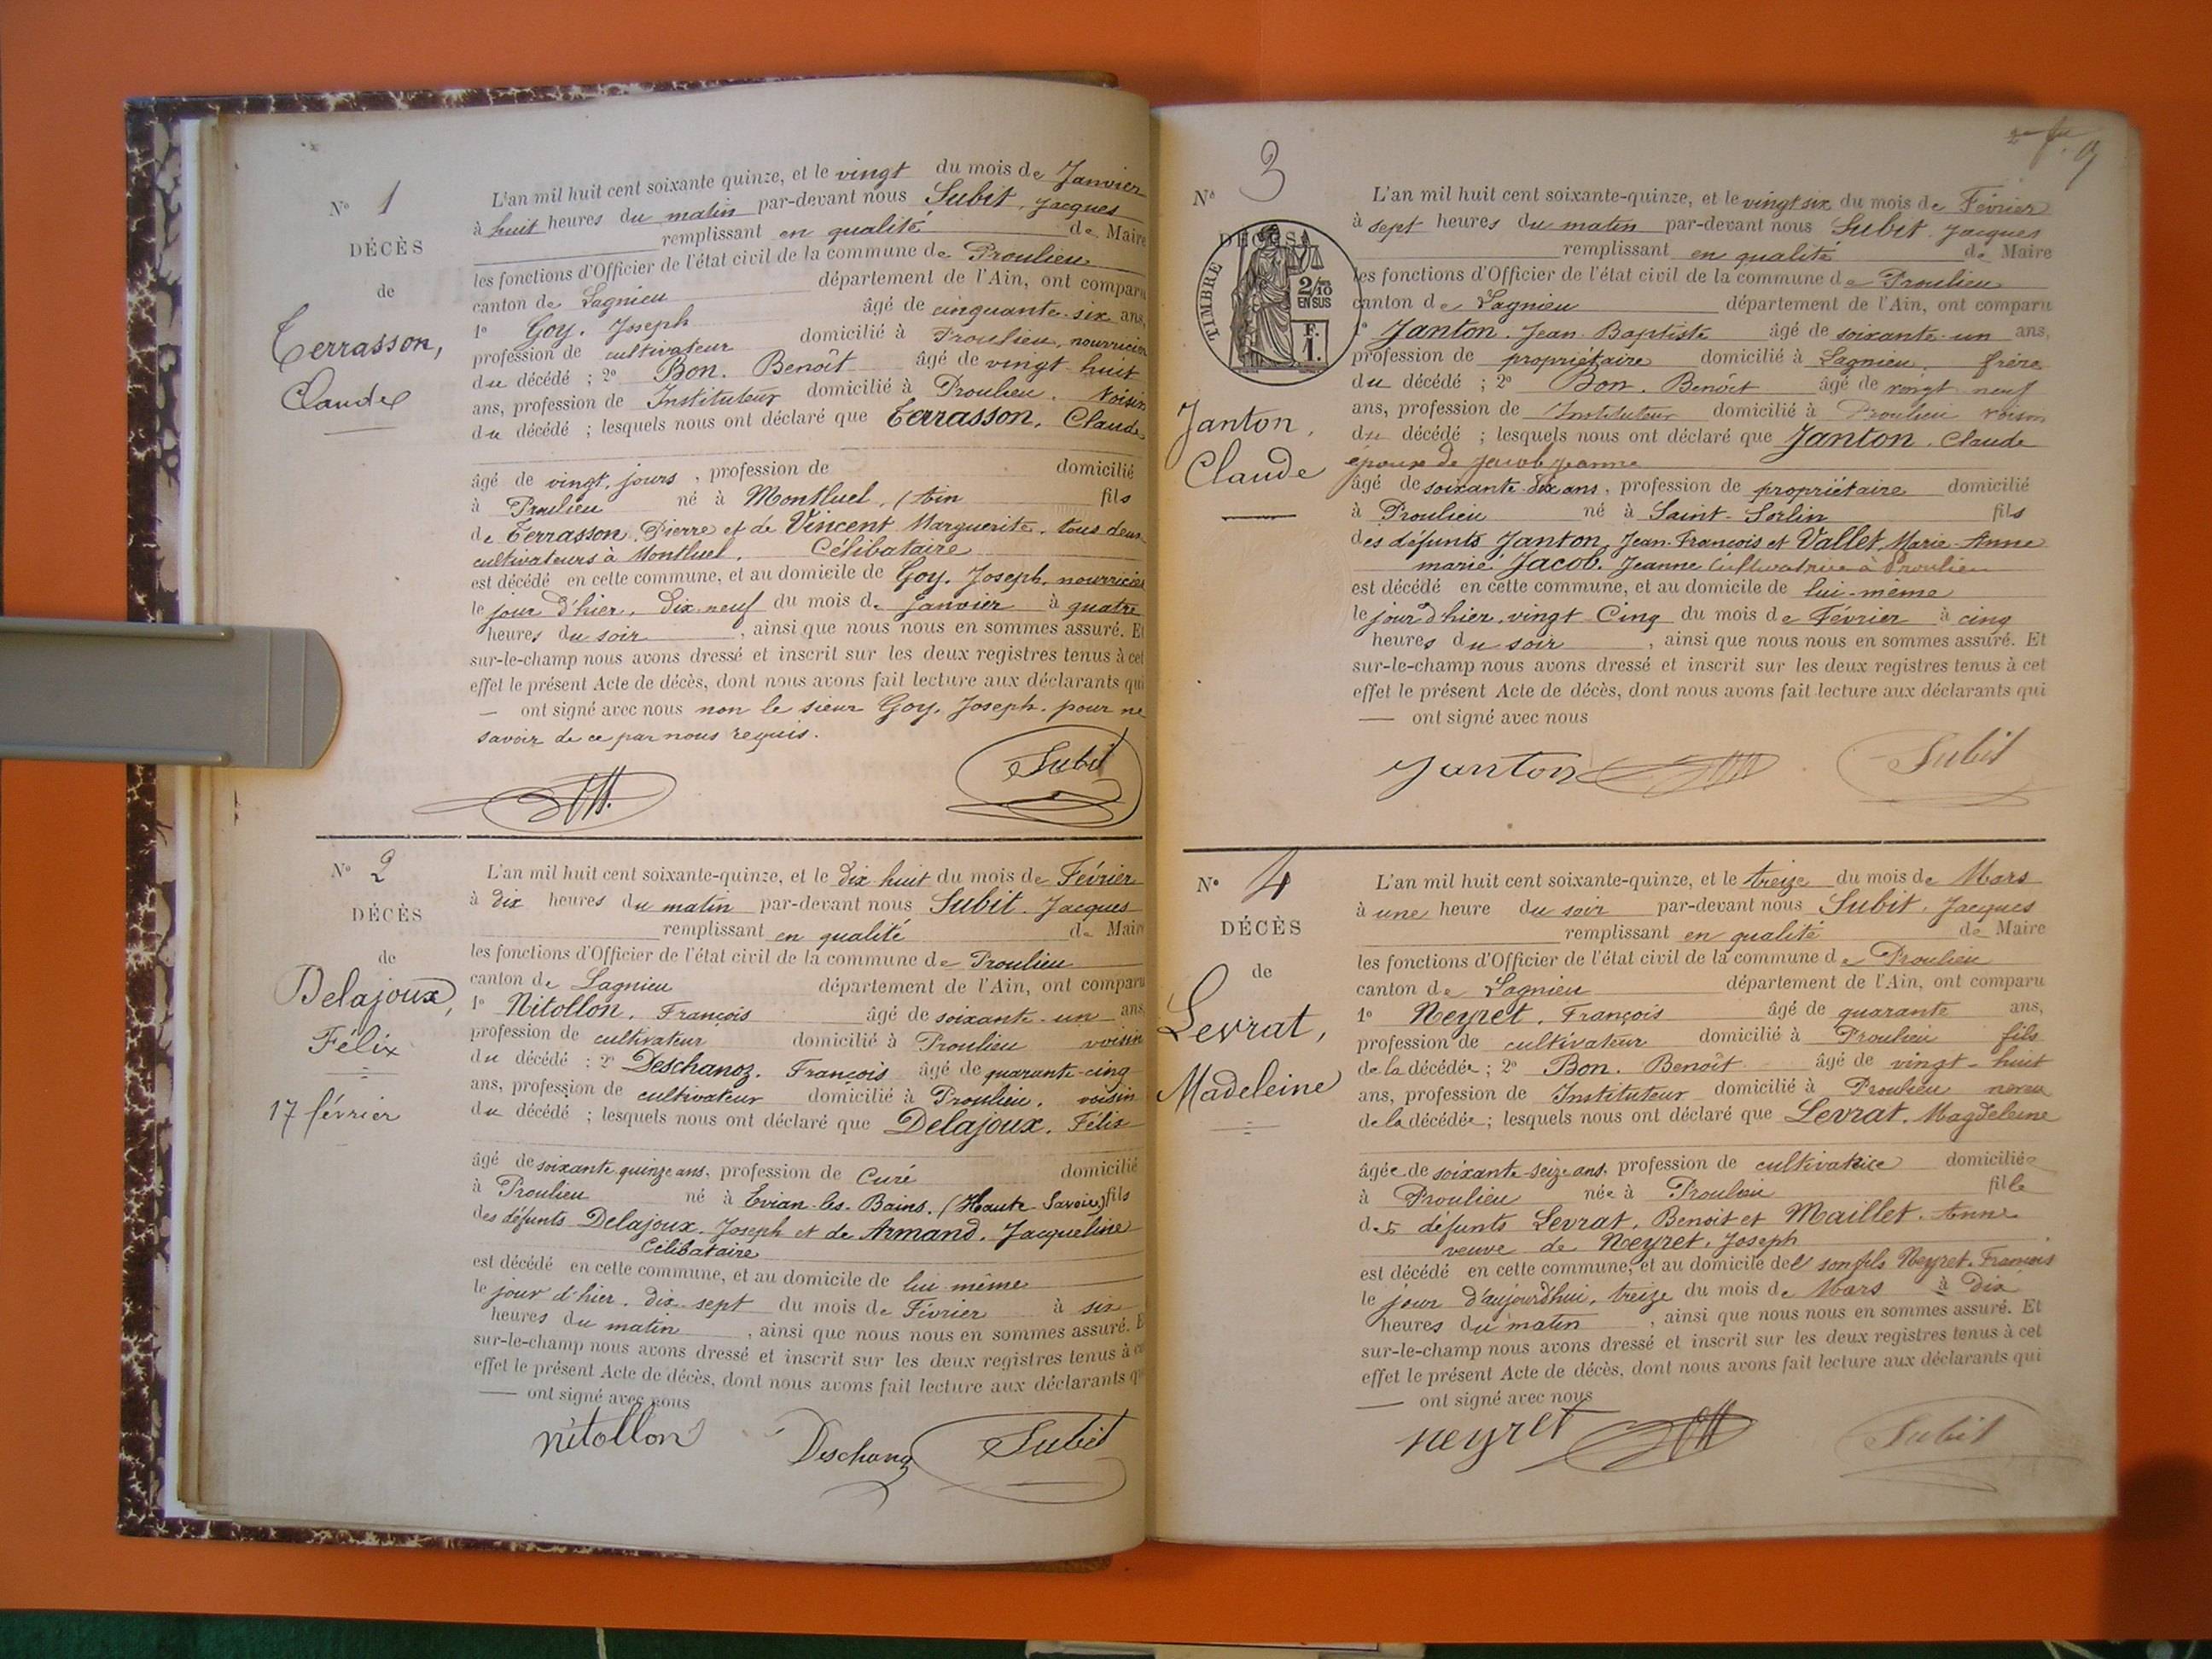 N° 1
DÉCÈS
de
Terrasson,
Claude
L'an mil huit cent soixante quinze, et le vingt du mois de Janvier
à huit heures du matin par-devant nous Subit, Jacques
remplissant en qualité de Maire
les fonctions d'Officier de l'état civil de la commune de Proulieu
canton de Lagnieu département de l'Ain, ont comparu
1° Goy. Joseph âgé de cinquante-six ans,
profession de cultivateur domicilié à Proulieu, nourricier
du décédé ; 2° Bon. Benoît âgé de vingt-huit
ans, profession de Instituteur domicilié à Proulieu. Voisin
du décédé ; lesquels nous ont déclaré que Terrasson, Claude
âgé de vingt jours, profession de domicilié
à Proulieu né à Montluel, (Ain fils
de Terrasson, Pierre et de Vincent Marguerite. tous deux
cultivateurs à Montluel. Célibataire
est décédé en cette commune, et au domicile de Goy. Joseph, nourricier
le jour d'hier. Dix-neuf du mois de Janvier à quatre
heures du soir, ainsi que nous nous en sommes assuré. Et
sur-le-champ nous avons dressé et inscrit sur les deux registres tenus à cet
effet le présent Acte de décès, dont nous avons fait lecture aux déclarants qui
— ont signé avec nous non le sieur Goy, Joseph. pour ne
savoir de ce par nous requis.
Subit
N° 2
DÉCÈS
de
Delajoux,
Félix
17 février
L'an mil huit cent soixante-quinze, et le dix huit du mois de Février
à dix heures du matin par-devant nous Subit. Jacques
remplissant en qualité de Maire
les fonctions d'Officier de l'état civil de la commune de Proulieu
canton de Lagnieu département de l'Ain, ont comparu
1° Nitollon. François âgé de soixante-un ans,
profession de cultivateur domicilié à Proulieu voisin
du décédé ; 2° Deschanoz. François âgé de quarante-cinq
ans, profession de cultivateur domicilié à Proulieu. voisin
du décédé ; lesquels nous ont déclaré que Delajoux. Félix
âgé de soixante quinze ans, profession de Curé domicilié
à Proulieu né à Evian-les-Bains. (Haute Savoie) fils
des défunts Delajoux. Joseph et de Armand. Jacqueline
Célibataire
est décédé en cette commune, et au domicile de lui même
le jour d'hier. dix-sept du mois de Février à six
heures du matin, ainsi que nous nous en sommes assuré. E
sur-le-champ nous avons dressé et inscrit sur les deux registres tenus à ce
effet le présent Acte de décès, dont nous avons fait lecture aux déclarants qu
— ont signé avec nous
nitollon Deschanoz Subit
N° 3
DÉCÈS
TIMBRE
2/10
EN SUS
F.
1.
Janton,
Claude
L'an mil huit cent soixante-quinze, et le vingt six du mois de Février
à sept heures du matin par-devant nous Subit. Jacques
remplissant en qualité de Maire
les fonctions d'Officier de l'état civil de la commune de Proulieu
canton de Lagnieu département de l'Ain, ont comparu
1° Janton. Jean-Baptiste âgé de soixante-un ans,
profession de propriétaire domicilié à Lagnieu. frère
du décédé ; 2° Bon. Benoît âgé de vingt-neuf
ans, profession de Instituteur domicilié à Proulieu voisin
du décédé ; lesquels nous ont déclaré que Janton. Claude
époux de Jacob Jeanne
âgé de soixante-dix ans, profession de propriétaire domicilié
à Proulieu né à Saint-Sorlin fils
des défunts Janton, Jean-François et Vallet, Marie-Anne
marié Jacob. Jeanne Cultivatrice à Proulieu
est décédé en cette commune, et au domicile de lui-même
le jour d'hier vingt-Cinq du mois de Février à cinq
heures du soir, ainsi que nous nous en sommes assuré. Et
sur-le-champ nous avons dressé et inscrit sur les deux registres tenus à cet
effet le présent Acte de décès, dont nous avons fait lecture aux déclarants qui
— ont signé avec nous
Janton Subit
N° 4
DÉCÈS
de
Levrat,
Madeleine
L'an mil huit cent soixante-quinze, et le treize du mois de Mars
à une heure du soir par-devant nous Subit. Jacques
remplissant en qualité de Maire
les fonctions d'Officier de l'état civil de la commune de Proulieu
canton de Lagnieu département de l'Ain, ont comparu
1° Neyret. François âgé de quarante ans,
profession de cultivateur domicilié à Proulieu fils
de la décédée ; 2° Bon. Benoît âgé de vingt-huit
ans, profession de Instituteur domicilié à Proulieu neveu
de la décédée ; lesquels nous ont déclaré que Levrat. Magdeleine
âgée de soixante-seize ans, profession de cultivatrice domiciliée
à Proulieu née à Proulieu fille
des défunts Levrat, Benoit et Maillet. Anne
veuve de Neyret. Joseph
est décédé en cette commune, et au domicile de son fils Neyret. François
le jour d'aujourd'hui, treize du mois de Mars à Dix
heures du matin, ainsi que nous nous en sommes assuré. Et
sur-le-champ nous avons dressé et inscrit sur les deux registres tenus à cet
effet le présent Acte de décès, dont nous avons fait lecture aux déclarants qui
— ont signé avec nous
neyret Subit